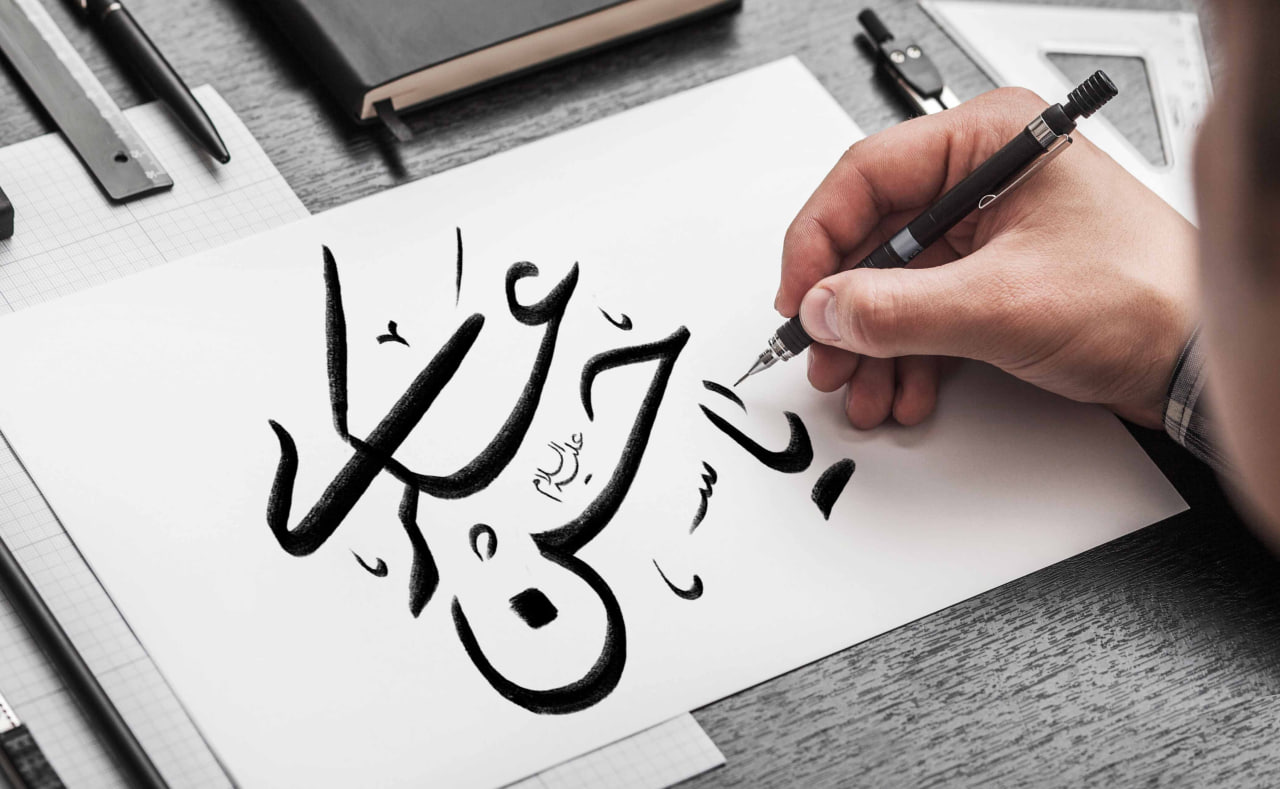 یا حسن عسکری
علیه السلام